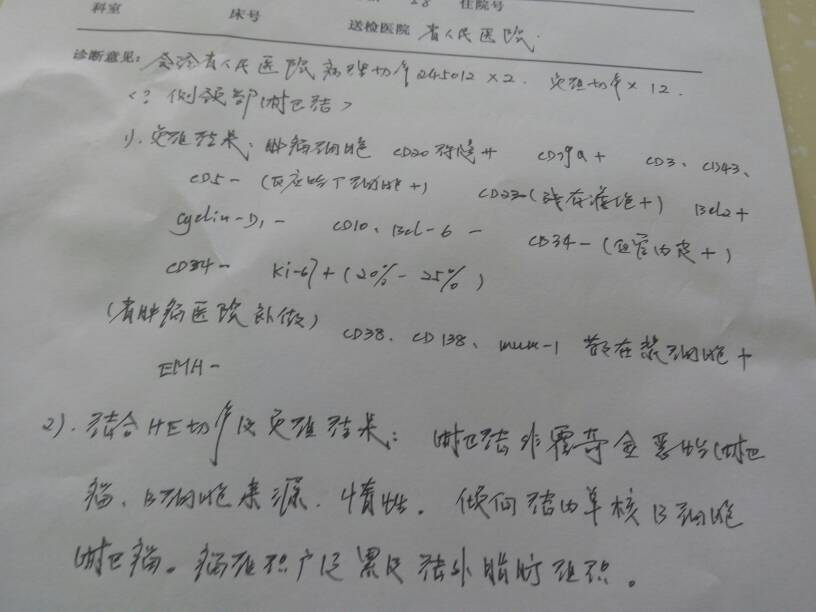 科室 床号 28 住院号
送检医院 省人民医院
诊断意见: 会诊省人民医院病理切片245012×2. 免组切片×12.
<?侧颈部淋巴结>
1). 免组结果: 肿瘤细胞 CD20弥漫+ CD79a+ CD3、CD43、
CD5- (反应性T细胞+) CD23-(残存滤泡+) Bcl2+
Cyclin-D1- CD10、Bcl-6- CD34-(血管内皮+)
CD34- Ki-67+(20%-25%)
(省肿瘤医院补做) CD38、CD138、mum-1 散在浆细胞+
EMA-
2). 结合HE切片及免组结果: 淋巴结非霍奇金恶性淋巴
瘤、B细胞来源.惰性。倾向结内单核B细胞
淋巴瘤。病组织广泛累及结外脂肪组织。